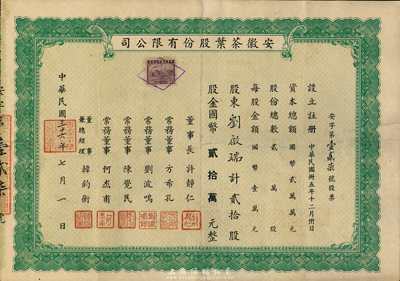 安徽茶葉股份有限公司
安字第壹貳柒號股票
設立註冊 中華民國卅五年十二月卅日
資本總額國幣貳萬萬元
股份總數貳萬股
每股金額國幣壹萬元
股東劉啟瑞計貳拾股
股金國幣貳拾萬元整
董事長許靜仁
常務董事方希孔
常務董事劉波鳴
常務董事陳覺民
常務董事何杰甫
董事兼總經理韓鈞衡
中華民國三十六年七月一日